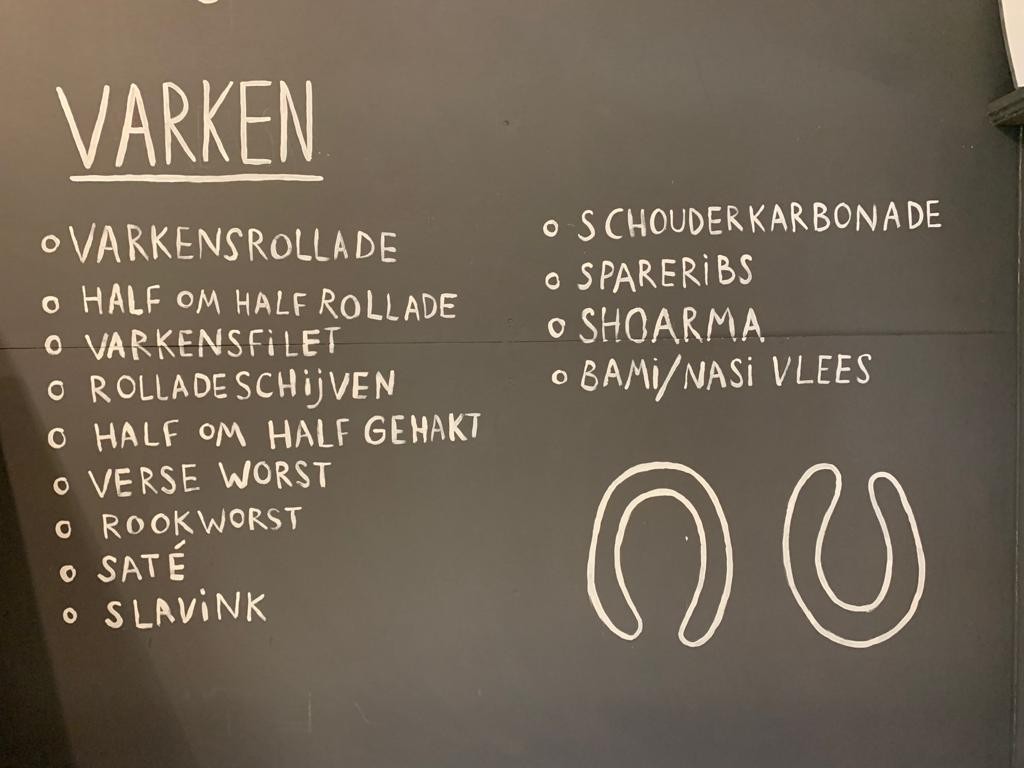 VARKEN
VARKENSROLLADE
HALF OM HALF ROLLADE
VARKENSFiLET
ROLLADESCHijVEN
HALF OM HALF GEHAKT
VERSE WORST
ROOKWORST
SATÉ
SLAViNK
SCHOUDERKARBONADE
SPARERiBS
SHOARMA
BAMi/NASi VLEES